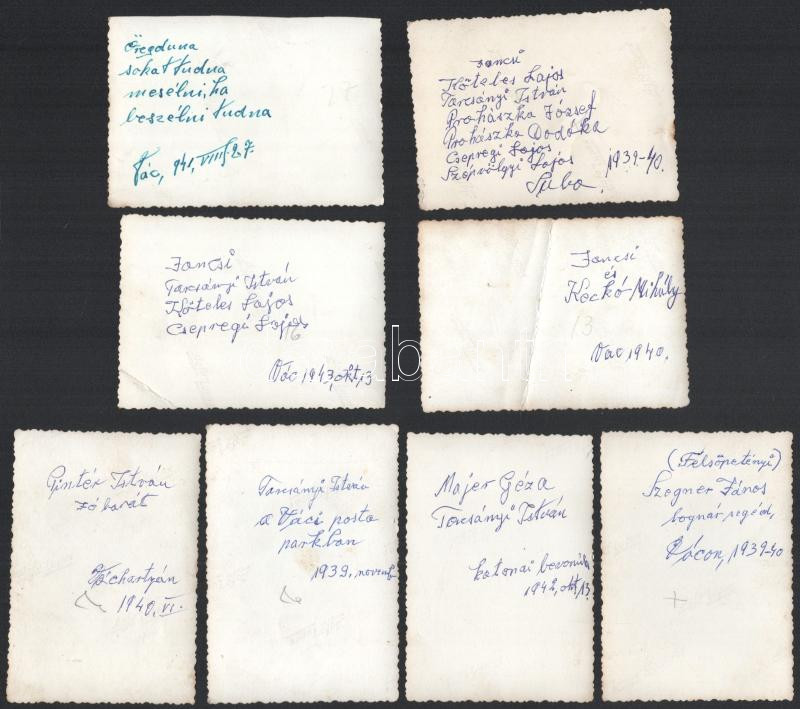 Öregduna
sokat tudna
mesélni, ha
beszélni tudna
Vác, 941, VIII. 27.
Jancsi
Köteles Lajos
Tarcsányi István
Prohászka József
Prohászka Dodóka
Csepregi Lajos
Szépvölgyi Lajos
Suba 1939-40.
Jancsi
Tarcsányi István
Köteles Lajos
Csepregi Lajos
16
Vác 1943, okt, 13
Jancsi
és
Keckó Mihály
13
Vac 1940.
Gintér István
jó barát
Váchartyán
1940. VI.
Tarcsányi István
a Váci posta
parkban
1939. novemb
Majer Géza
Tarcsányi István
katonai bevonulás
1942, okt, 13
(Felsőpetényi)
Szegner János
bognár segéd,
Vácon, 1939-40